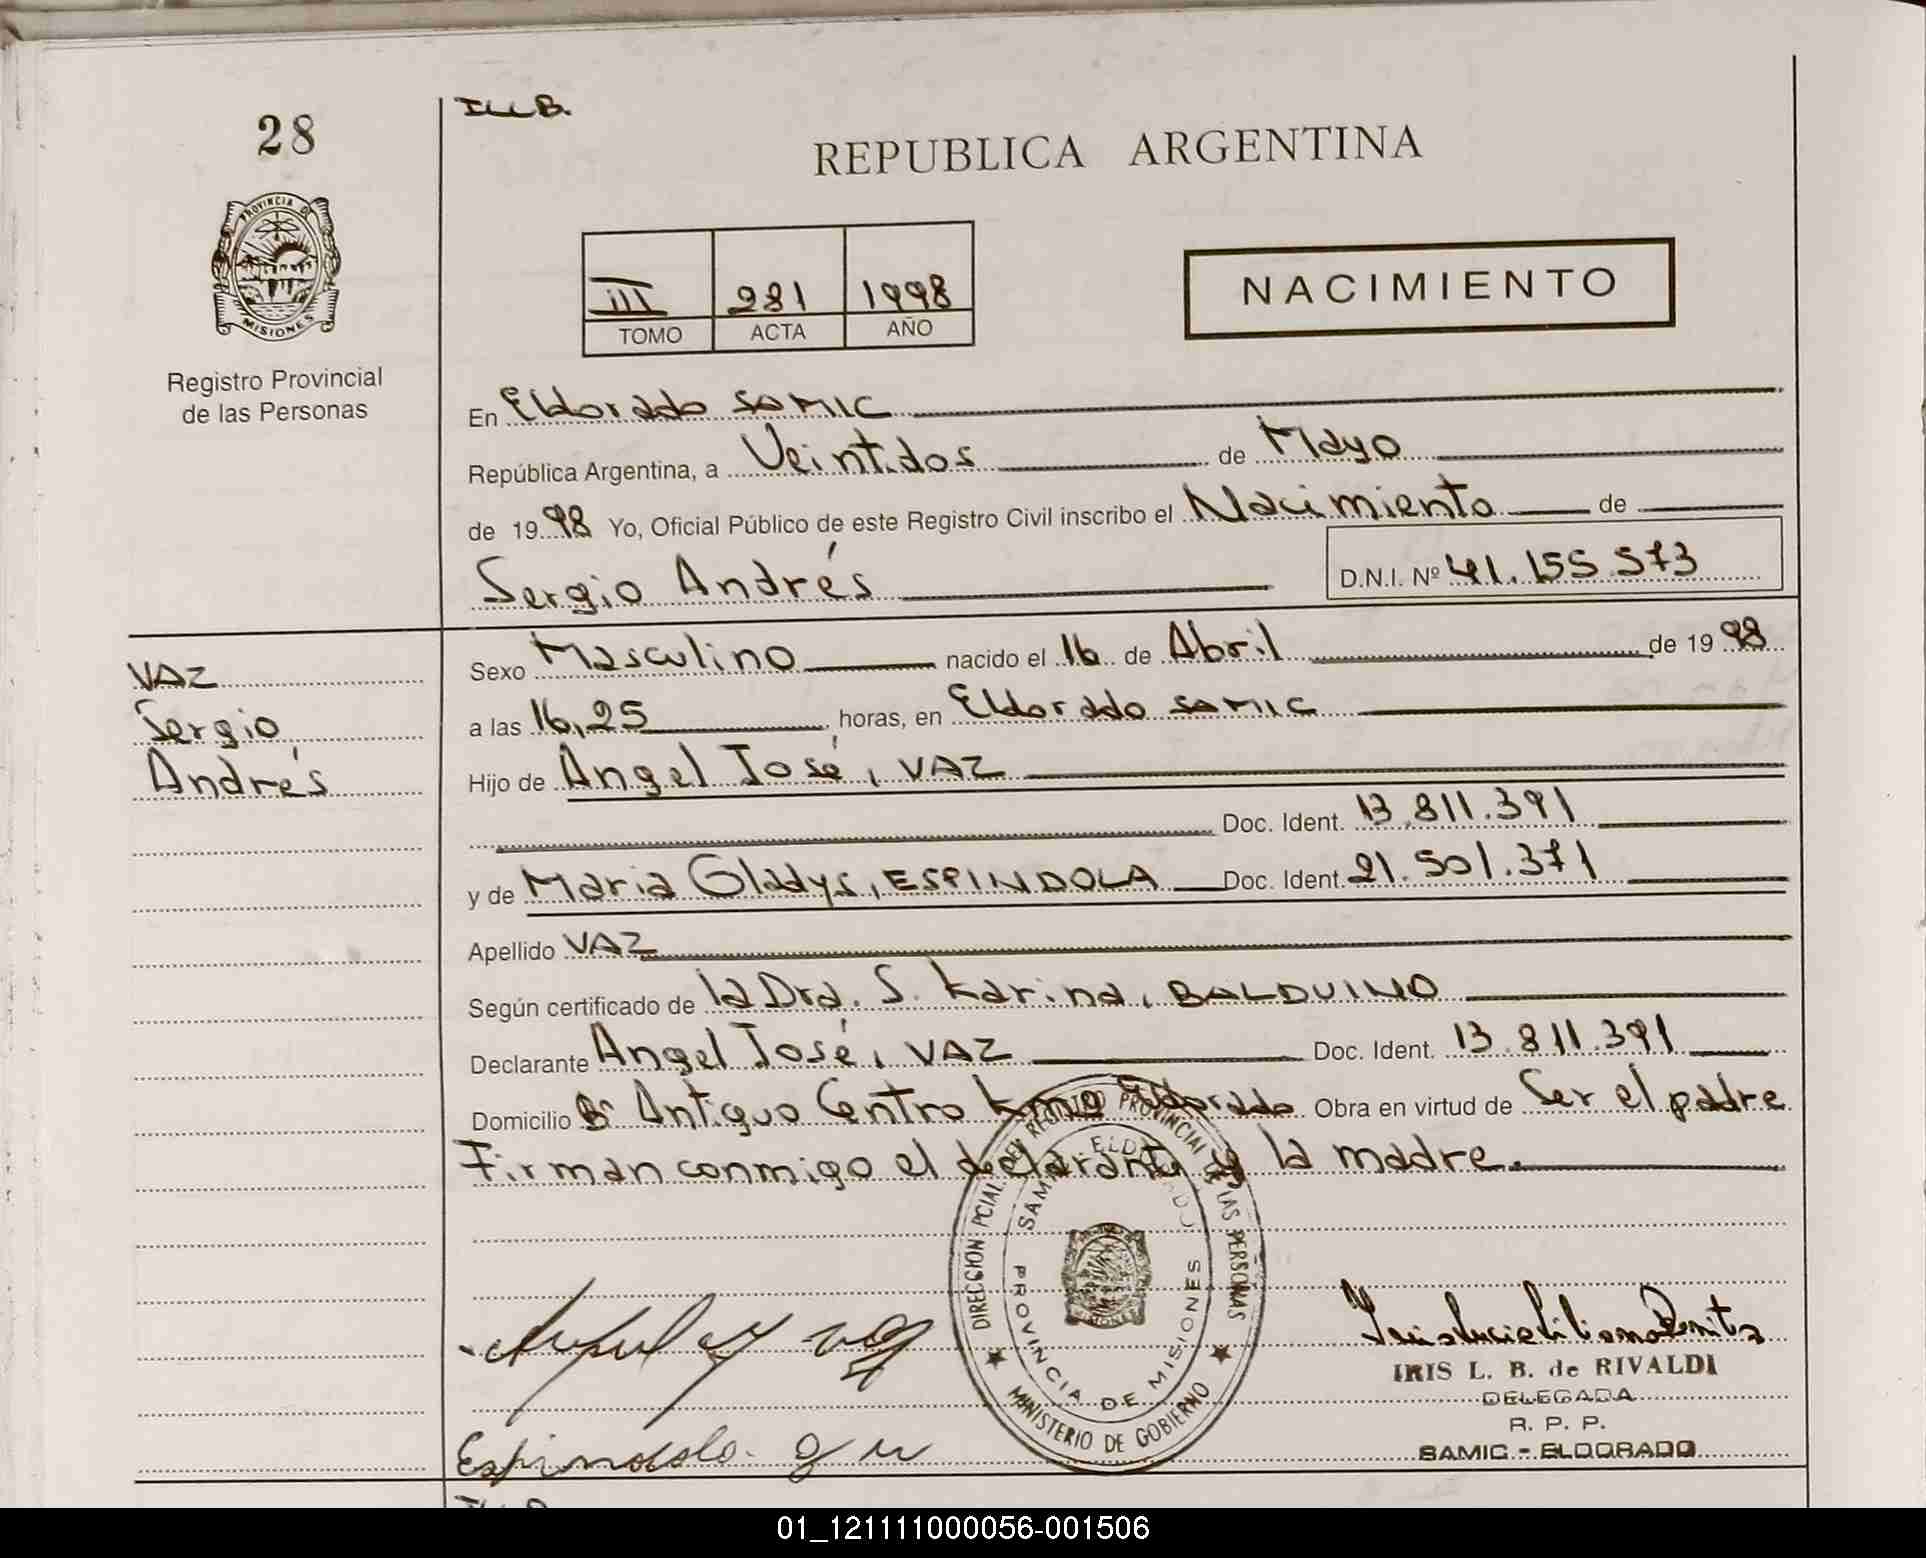 28
ILLB.
REPUBLICA ARGENTINA
PROVINCIA DE
MISIONES
Registro Provincial
de las Personas
III 281 1998
TOMO ACTA AÑO
NACIMIENTO
En Eldorado SAMIC
República Argentina, a Veintidos de Mayo
de 1998 Yo, Oficial Público de este Registro Civil inscribo el Nacimiento de
Sergio Andrés D.N.I. Nº 41.155.573
VAZ
Sergio
Andrés
Sexo Masculino nacido el 16 de Abril de 1998
a las 16,25 horas, en Eldorado SAMIC
Hijo de Angel José, VAZ
Doc. Ident. 13.811.391
y de Maria Gladys, ESPINDOLA Doc. Ident. 21.501.371
Apellido VAZ
Según certificado de la Dra. S. Karina, BALDUINO
Declarante Angel José, VAZ Doc. Ident. 13.811.391
Domicilio Bº Antiguo Centro Eldorado Obra en virtud de Ser el padre
Firman conmigo el declarante y la madre.
DIRECCION PCIAL. DEL REGISTRO PROVINCIAL DE LAS PERSONAS
PROVINCIA DE MISIONES
MISIONES
MINISTERIO DE GOBIERNO
Espindola
IRIS L. B. de RIVALDI
DELEGADA
R. P. P.
SAMIC - ELDORADO
01_121111000056-001506